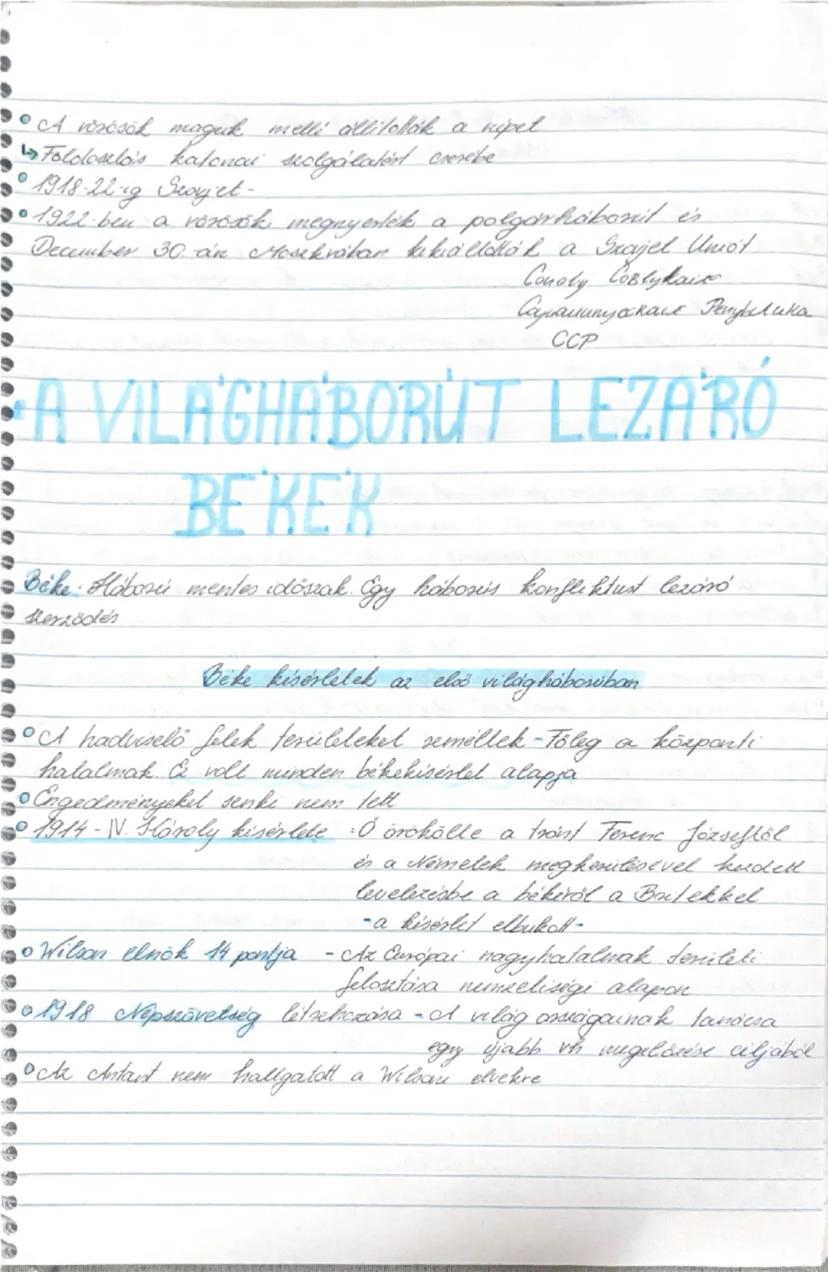 A vörösök maguk mellé állították a népet
↳ Földosztás katonai szolgálatért cserébe
1918-22-ig Szovjet-
1922-ben a vörösök megnyerték a polgárháborút és
December 30-án Moszkvában kikiáltották a Szovjet Uniót
ССР
A VILÁGHÁBORÚT LEZÁRÓ
BÉKÉK
Béke: Háború mentes időszak. Egy háborús konfliktust lezáró
szerződés
Béke kísérletek az első világháborúban
A hadviselő felek területeket reméltek - Főleg a központi
hatalmak. Ez volt minden békekísérlet alapja
Engedményeket senki nem tett
1914 - IV. Károly kísérlete : Ő örökölte a trónt Ferenc Józseftől
és a Németek megkerülésével kezdett
levelezésbe a békéről a Britekkel
- a kísérlet elbukott -
Wilson elnök 14 pontja - Az Európai nagyhatalmak területi
felosztása nemzetiségi alapon
1918 Népszövetség létrehozása - A világ országainak tanácsa
egy újabb vh megelőzése céljából
Az Antant nem hallgatott a Wilsoni elvekre